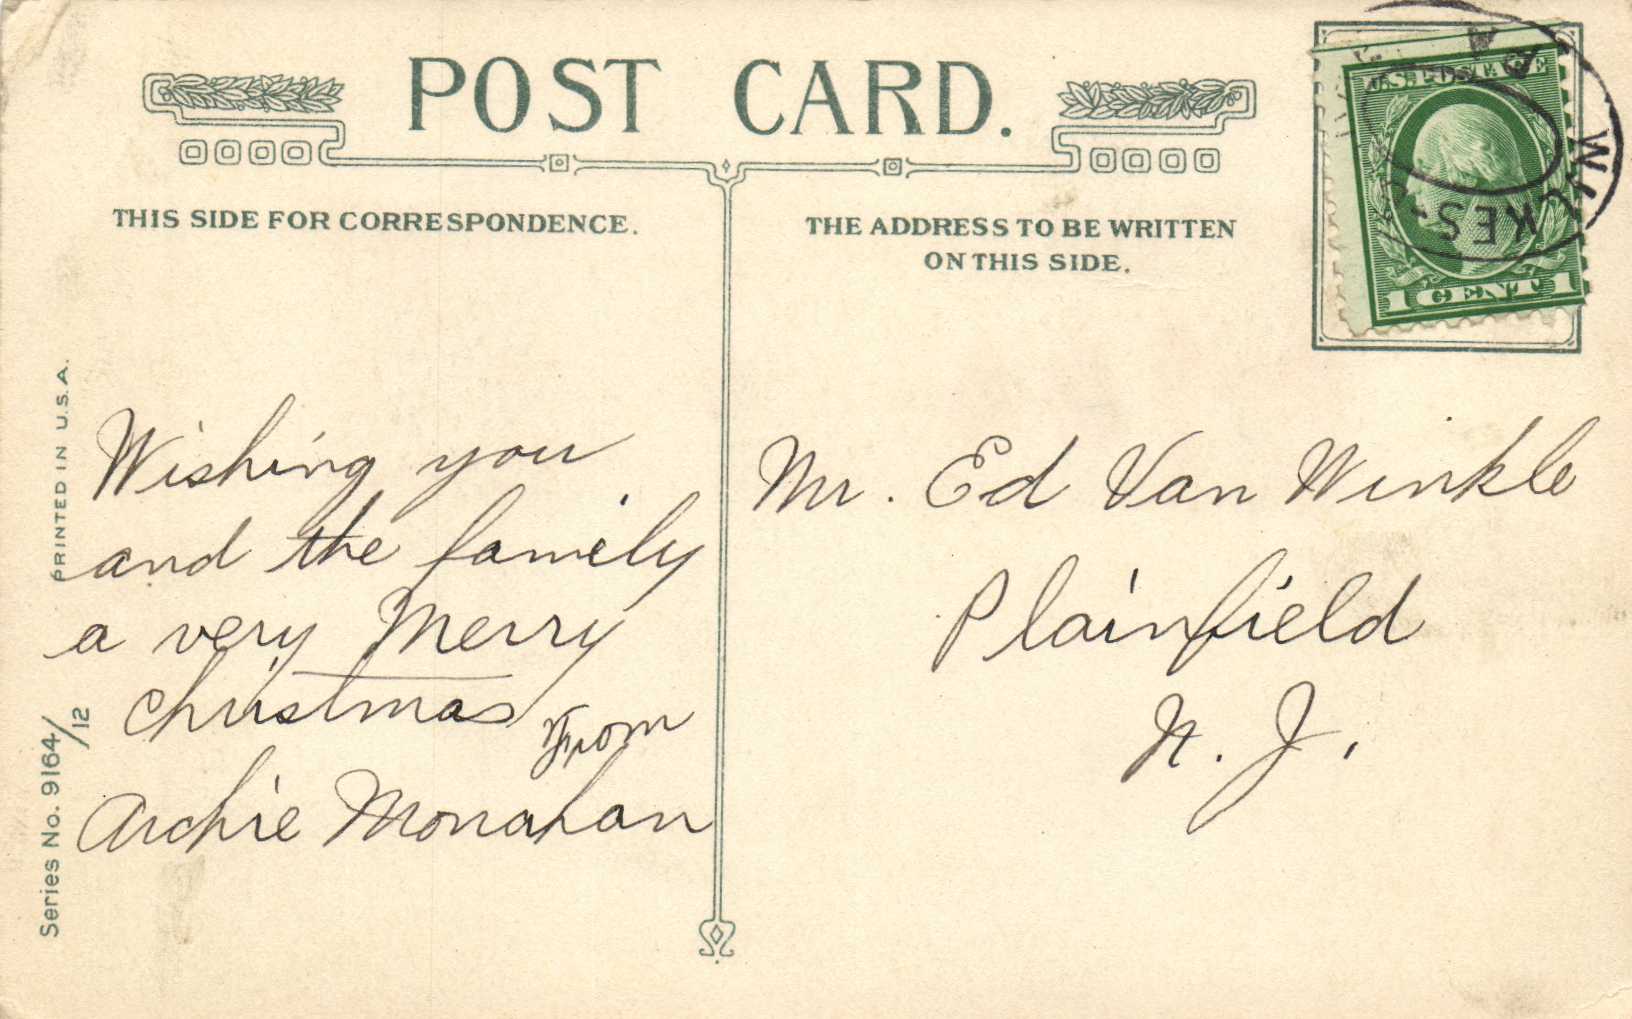 POST CARD.
THIS SIDE FOR CORRESPONDENCE.
THE ADDRESS TO BE WRITTEN
ON THIS SIDE.
U.S. POSTAGE
1 CENT 1
WILKES-
PA
Wishing you
and the family
a very Merry
Christmas From
Archie Monahan
Mr. Ed Van Winkle
Plainfield
N. J.
PRINTED IN U.S.A.
Series No. 9164/12